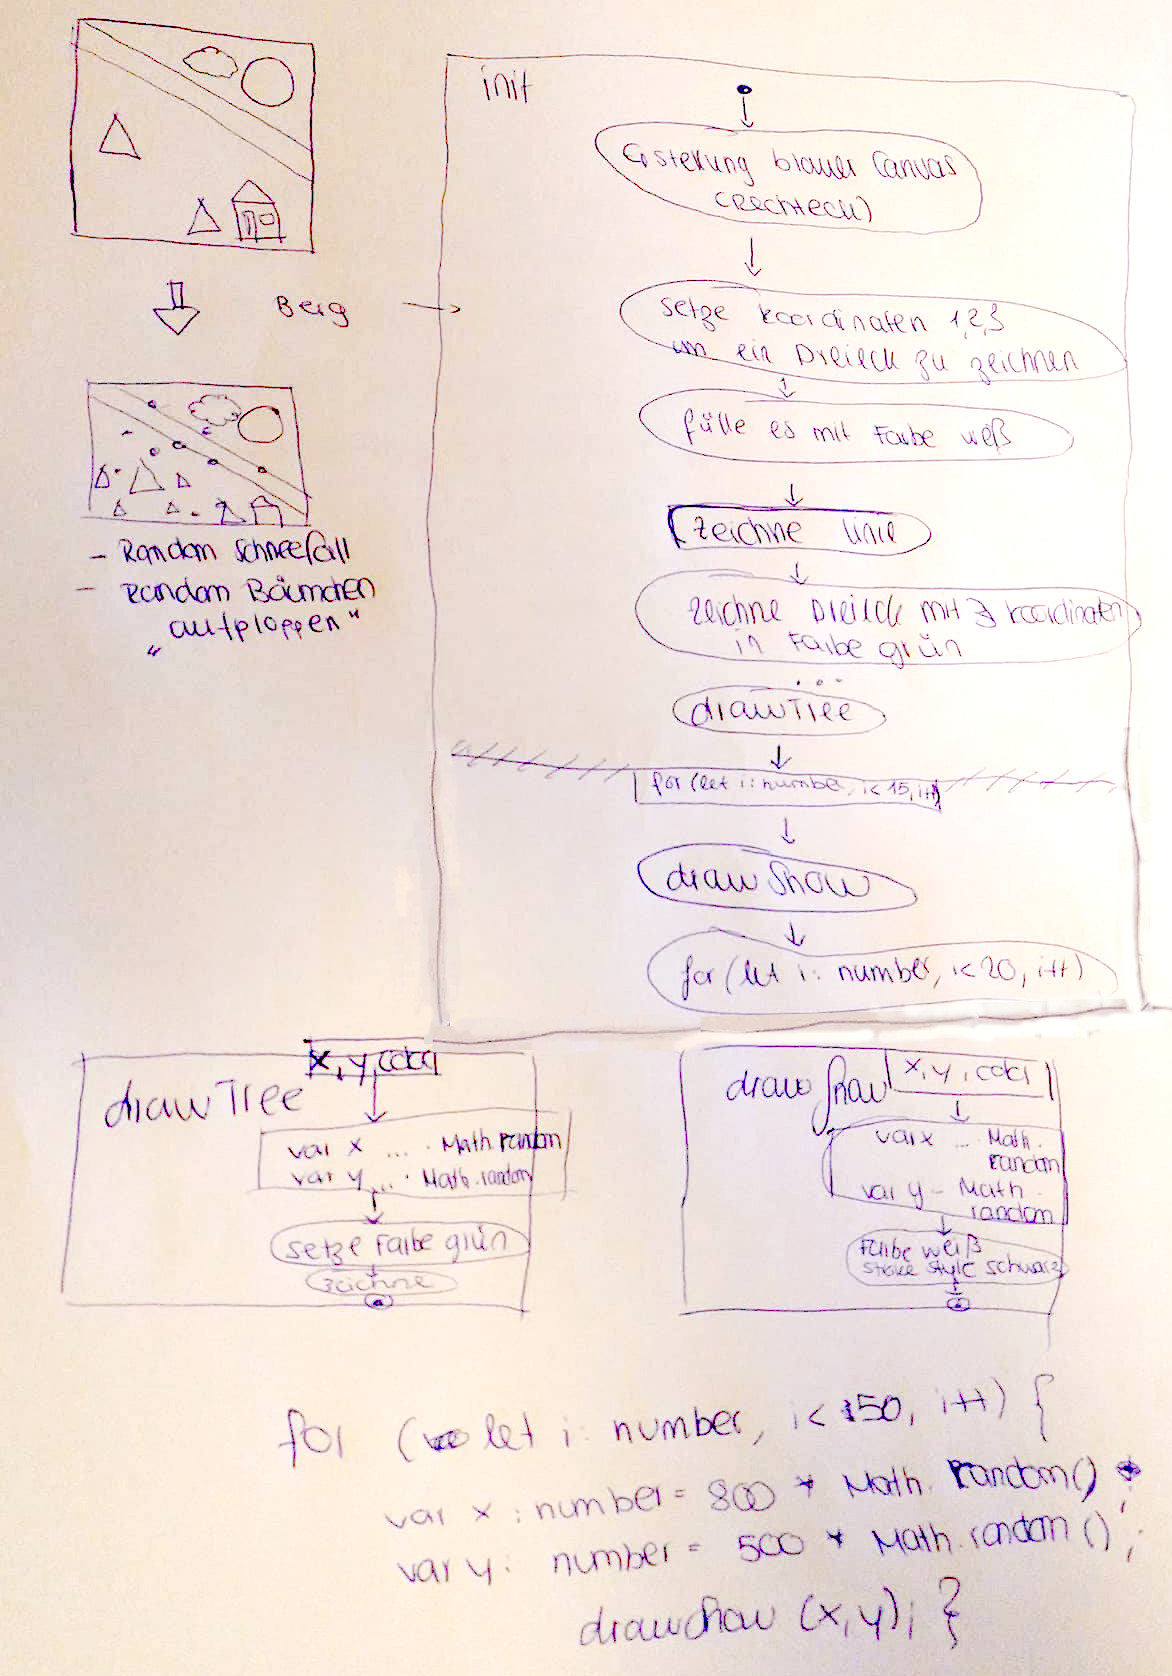 init
Erstellung blauer Canvas
(Rechteck)
Berg
setze Koordinaten 1,2,3
um ein Dreieck zu zeichnen
fülle es mit Farbe weiß
zeichne Linie
zeichne Dreieck mit 3 Koordinaten
in Farbe grün
...
drawTree
for (let i: number, i < 15, i++)
drawSnow
for (let i: number, i < 20, i++)
- Random Schneefall
- Random Bäumchen
"aufploppen"
drawTree
x, y, color
var x ... Math.random
var y ... Math.random
setze Farbe grün
zeichne
drawSnow
x, y, color
var x ... Math.
random
var y - Math.
random
Farbe weiß
stroke style schwarz
for ( let i: number, i < 150, i++) {
var x : number = 800 * Math.random() ;
var y : number = 500 * Math.random() ;
drawSnow (x, y); }